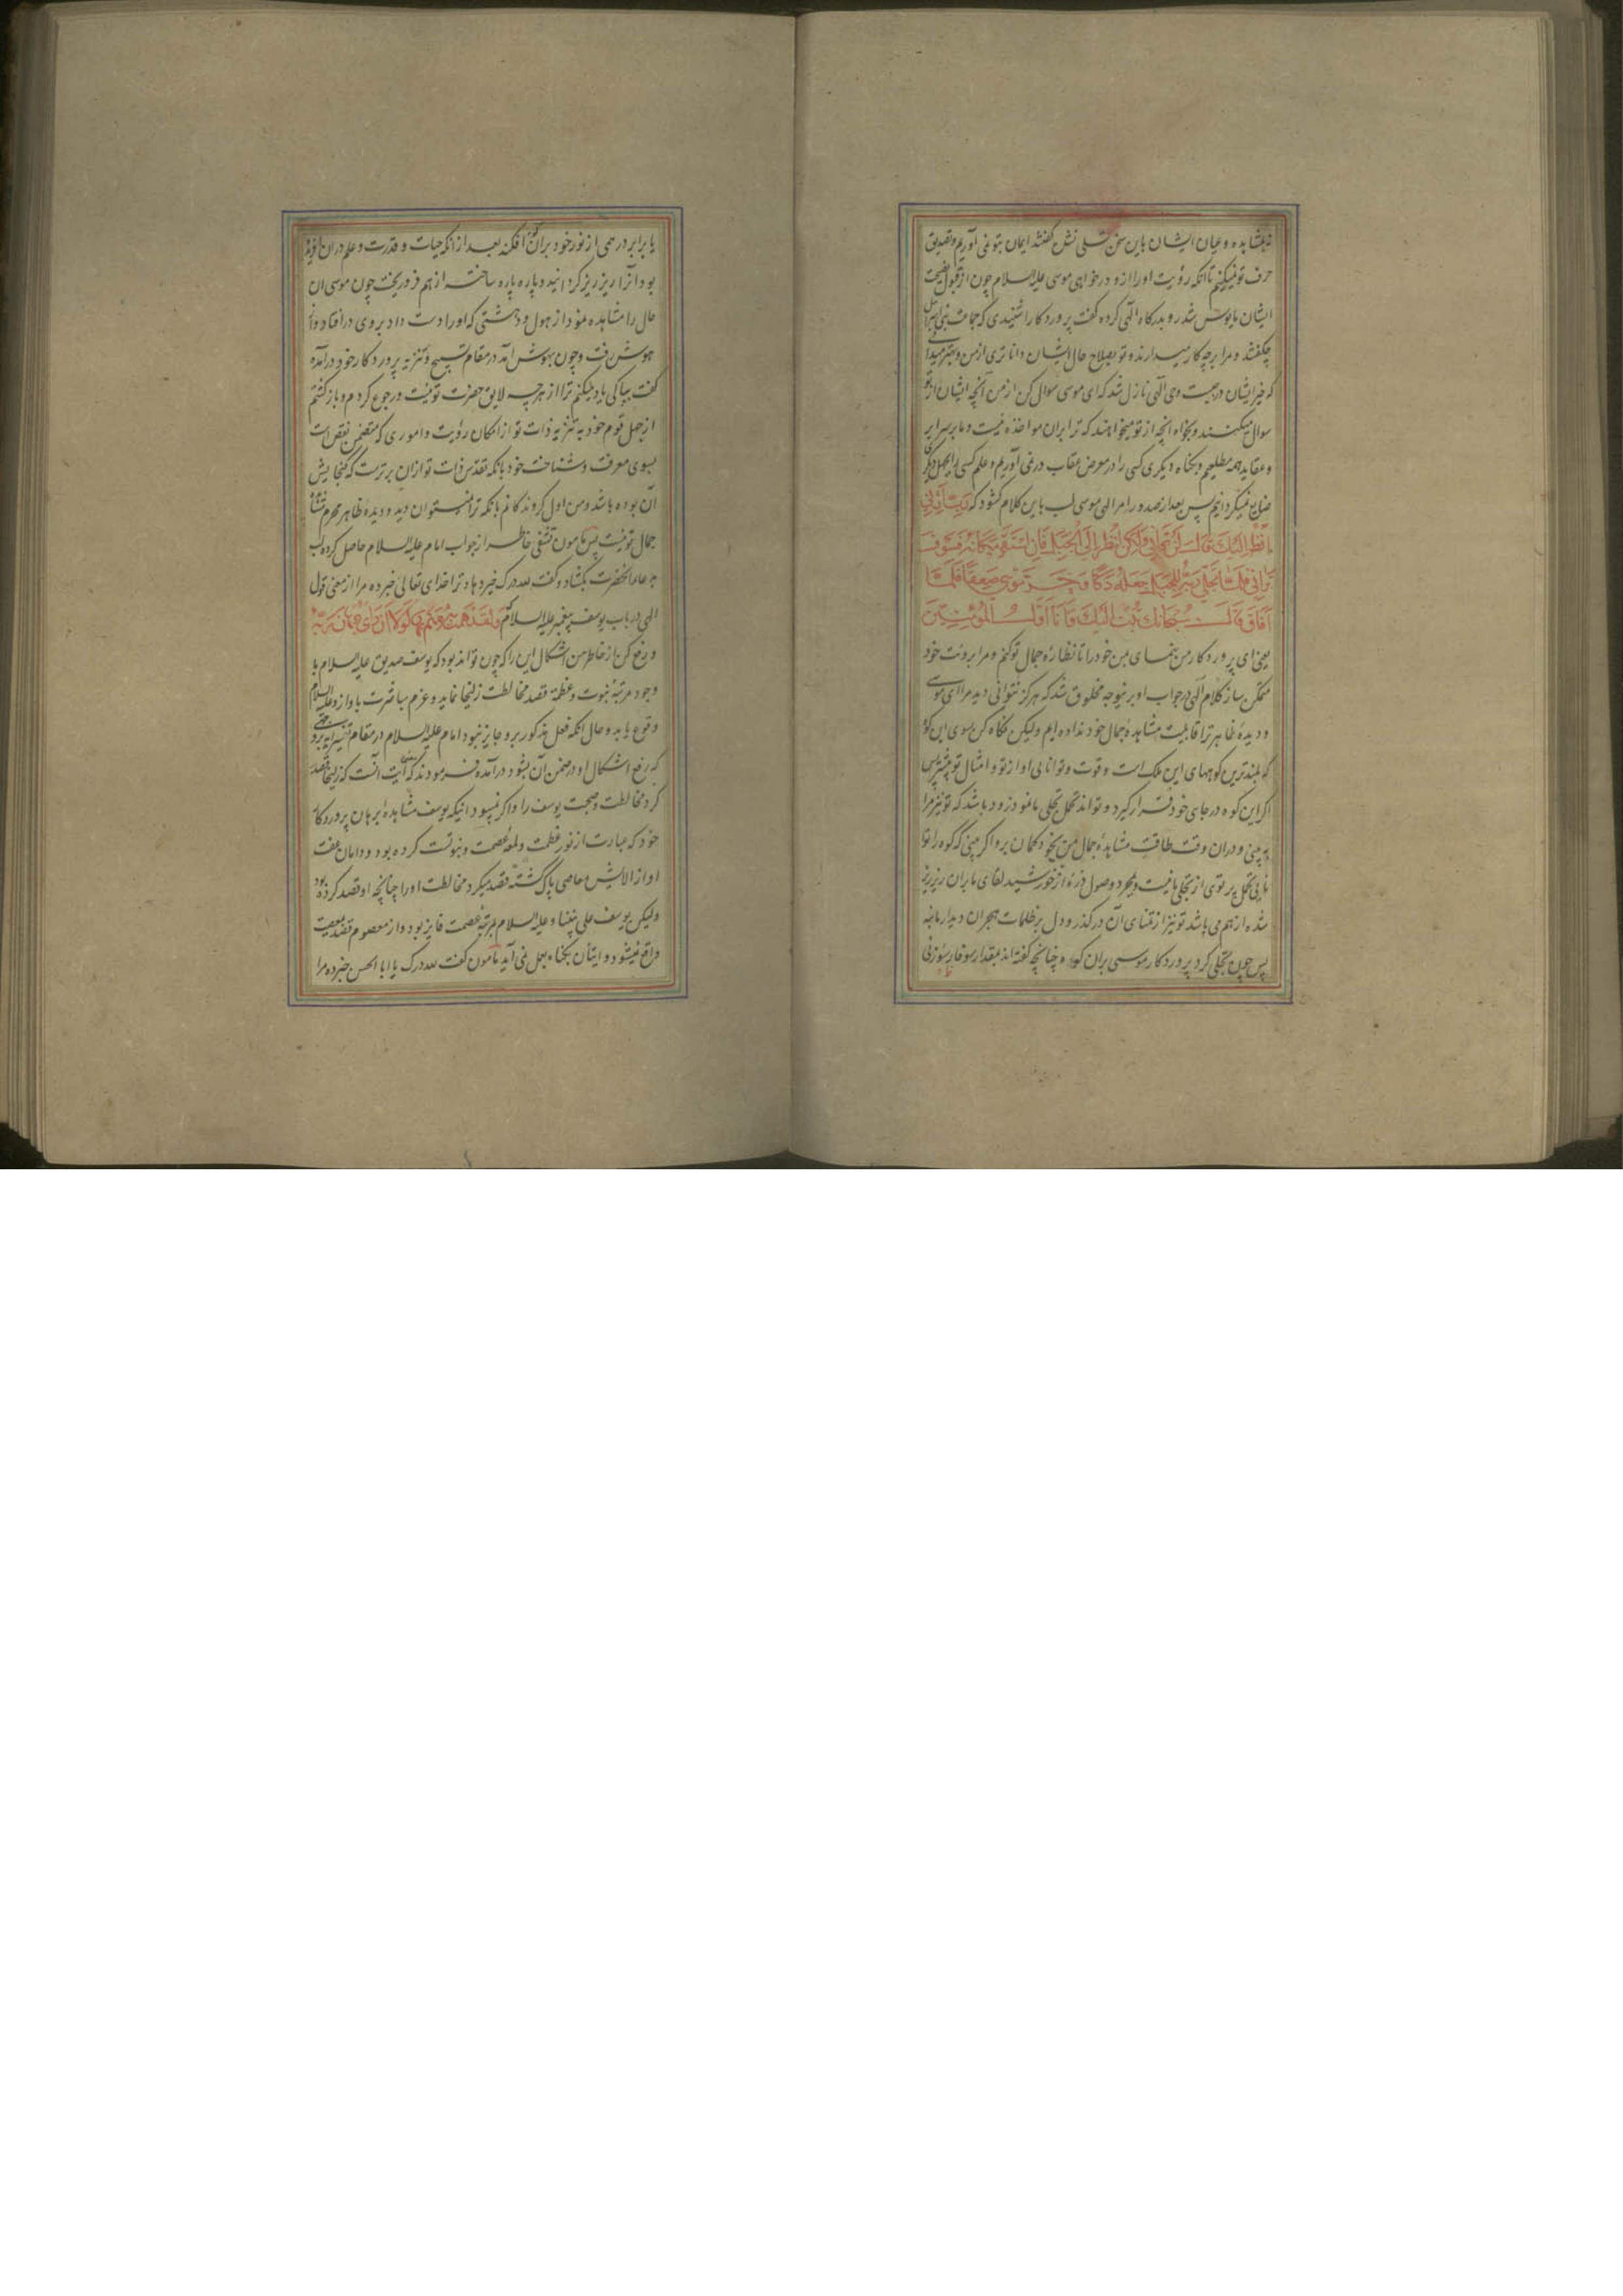 نه بمشاهده و عیان ایشان باین سخن تسلی نشده گفتند ایمان بتو نمی آوریم و تصدیق
حرف تو نمیکنیم تا آنکه رؤیت او را ازو درخواهی موسی علیه السلام چون از قبول نصیحت
ایشان مایوس شد رو بدرگاه الهی کرده گفت پروردگارا شنیدی که جماعت بنی اسرائیل
چه گفتند و مرا بر چه کار میدارند و تو بصلاح حال ایشان داناتری از من و بهتر میدانی
که خیر ایشان در چیست وحی الهی نازل شد که ای موسی سوال کن از من آنچه ایشان از تو
سوال میکنند و بخواه آنچه از تو میخواهند که ترا بران مواخذه نیست و ما بر سرایر
و عقاید همه مطلعیم و بگناه دیگری کسی را در معرض عقاب در نمی آوریم و علم کسی را بجهل دیگری
ضایع نمیگردانیم پس بعد از صدور امر الهی موسی لب باین کلام گشود که رب ارنی
انظر الیک قال لن ترانی ولکن انظر الی الجبل فان استقر مکانه فسوف
ترانی فلما تجلی ربه للجبل جعله دکا و خر موسی صعقا فلما
افاق قال سبحانک تبت الیک و انا اول المؤمنین
یعنی ای پروردگار من بنمای بمن خود را تا نظاره جمال تو کنم و مرا برؤیت خود
متمکن ساز کلام الهی در جواب او برینوجه مخلوق شد که هرگز نتوانی دید مرا ای موسی
و دیدهٔ ظاهر ترا قابلیت مشاهدهٔ جمال خود نداده ایم ولیکن نگاه کن بسوی این کوه
که بلندترین کوههای این ملک است و قوت و توانایی او از تو و امثال تو بیشتر پس
اگر این کوه در جای خود قرار گیرد و تواند تحمل تجلی ما نمود زود باشد که تو نیز مرا
به بینی و دران وقت طاقت مشاهدهٔ جمال من بخود گمان بر و اگر بینی که کوه را توا
نایی تحمل پرتوی از تجلی ما نیست و بمجرد وصول ذرهٔ از خورشید لقای ما بران ریز ریز
شده از هم می پاشد تو نیز از تمنای آن در گذر و دل بر ظلمات هجران دیدار ما بنه
پس چون تجلی کرد پروردگار موسی بران کوه چنانچه گفته اند بمقدار سوفار سوزنی
یا برابر درهمی از نور خود بران کوه افکند بعد از آنکه حیات و قدرت و علم دران آفریده
بود و آنرا ریز ریز گردانید و پاره پاره ساخته از هم فرو ریخت چون موسی آن
حال را مشاهده نمود از هول و دهشتی که او را دست داد بروی در افتاد و از
هوش رفت و چون بهوش آمد در مقام تسبیح و تنزیه پروردگار خود درآمده
گفت بپاکی یاد میکنم ترا از هرچه لایق حضرت تو نیست و رجوع کردم و بازگشتم
از جهل قوم خود به تنزیه ذات تو از امکان رؤیت و اموری که متضمن نقص است
بسوی معرفت و شناخت خود بآنکه تقدس ذات تو ازان برترست که گنجایش
آن بوده باشد و من اول گروندگانم بآنکه ترا نمیتوان دید و دیدهٔ ظاهر محرم تماشا
جمال تو نیست پس مامون تشفی خاطر از جواب امام علیه السلام حاصل کرده لب
به دعای آنحضرت بگشاد و گفت لله درک خیر دهاد ترا خدای تعالی خبر ده مرا از معنی قول
الهی در باب یوسف پیغمبر علیه السلام که و لقد همت به و هم بها لولا ان رای برهان ربه
و رفع کن از خاطر من اشکال این را که چون تواند بود که یوسف صدیق علیه السلام با
وجود مرتبهٔ نبوت و عظمة قصد مخالطت زلیخا نماید و عزم مباشرت با او ازو علیه السلام
وقوع یابد و حال آنکه فعل مذکور برو جایز نبود امام علیه السلام در مقام تفسیر آیه بروجهی
که رفع اشکال او در ضمن آن بشود درآمده فرمودند که معنی آیت آنست که زلیخا قصد
کرد مخالطت و صحبت یوسف را و اگر نمیبود اینکه یوسف مشاهدهٔ برهان پروردگار
خود که عبارت از نور عظمت و لمعهٔ عصمت و نبوتست کرده بود و دامان عفت
او از آلایش معاصی پاک گشته قصد میکرد مخالطت او را چنانچه او قصد کرده بود
ولیکن یوسف علی نبینا و علیه السلام بمرتبهٔ عصمت فایز بود و از معصوم قصد معصیت
واقع نمیشود و ایشان بگناه بعمل نمی آید مامون گفت لله درک یا ابا الحسن خبر ده مرا